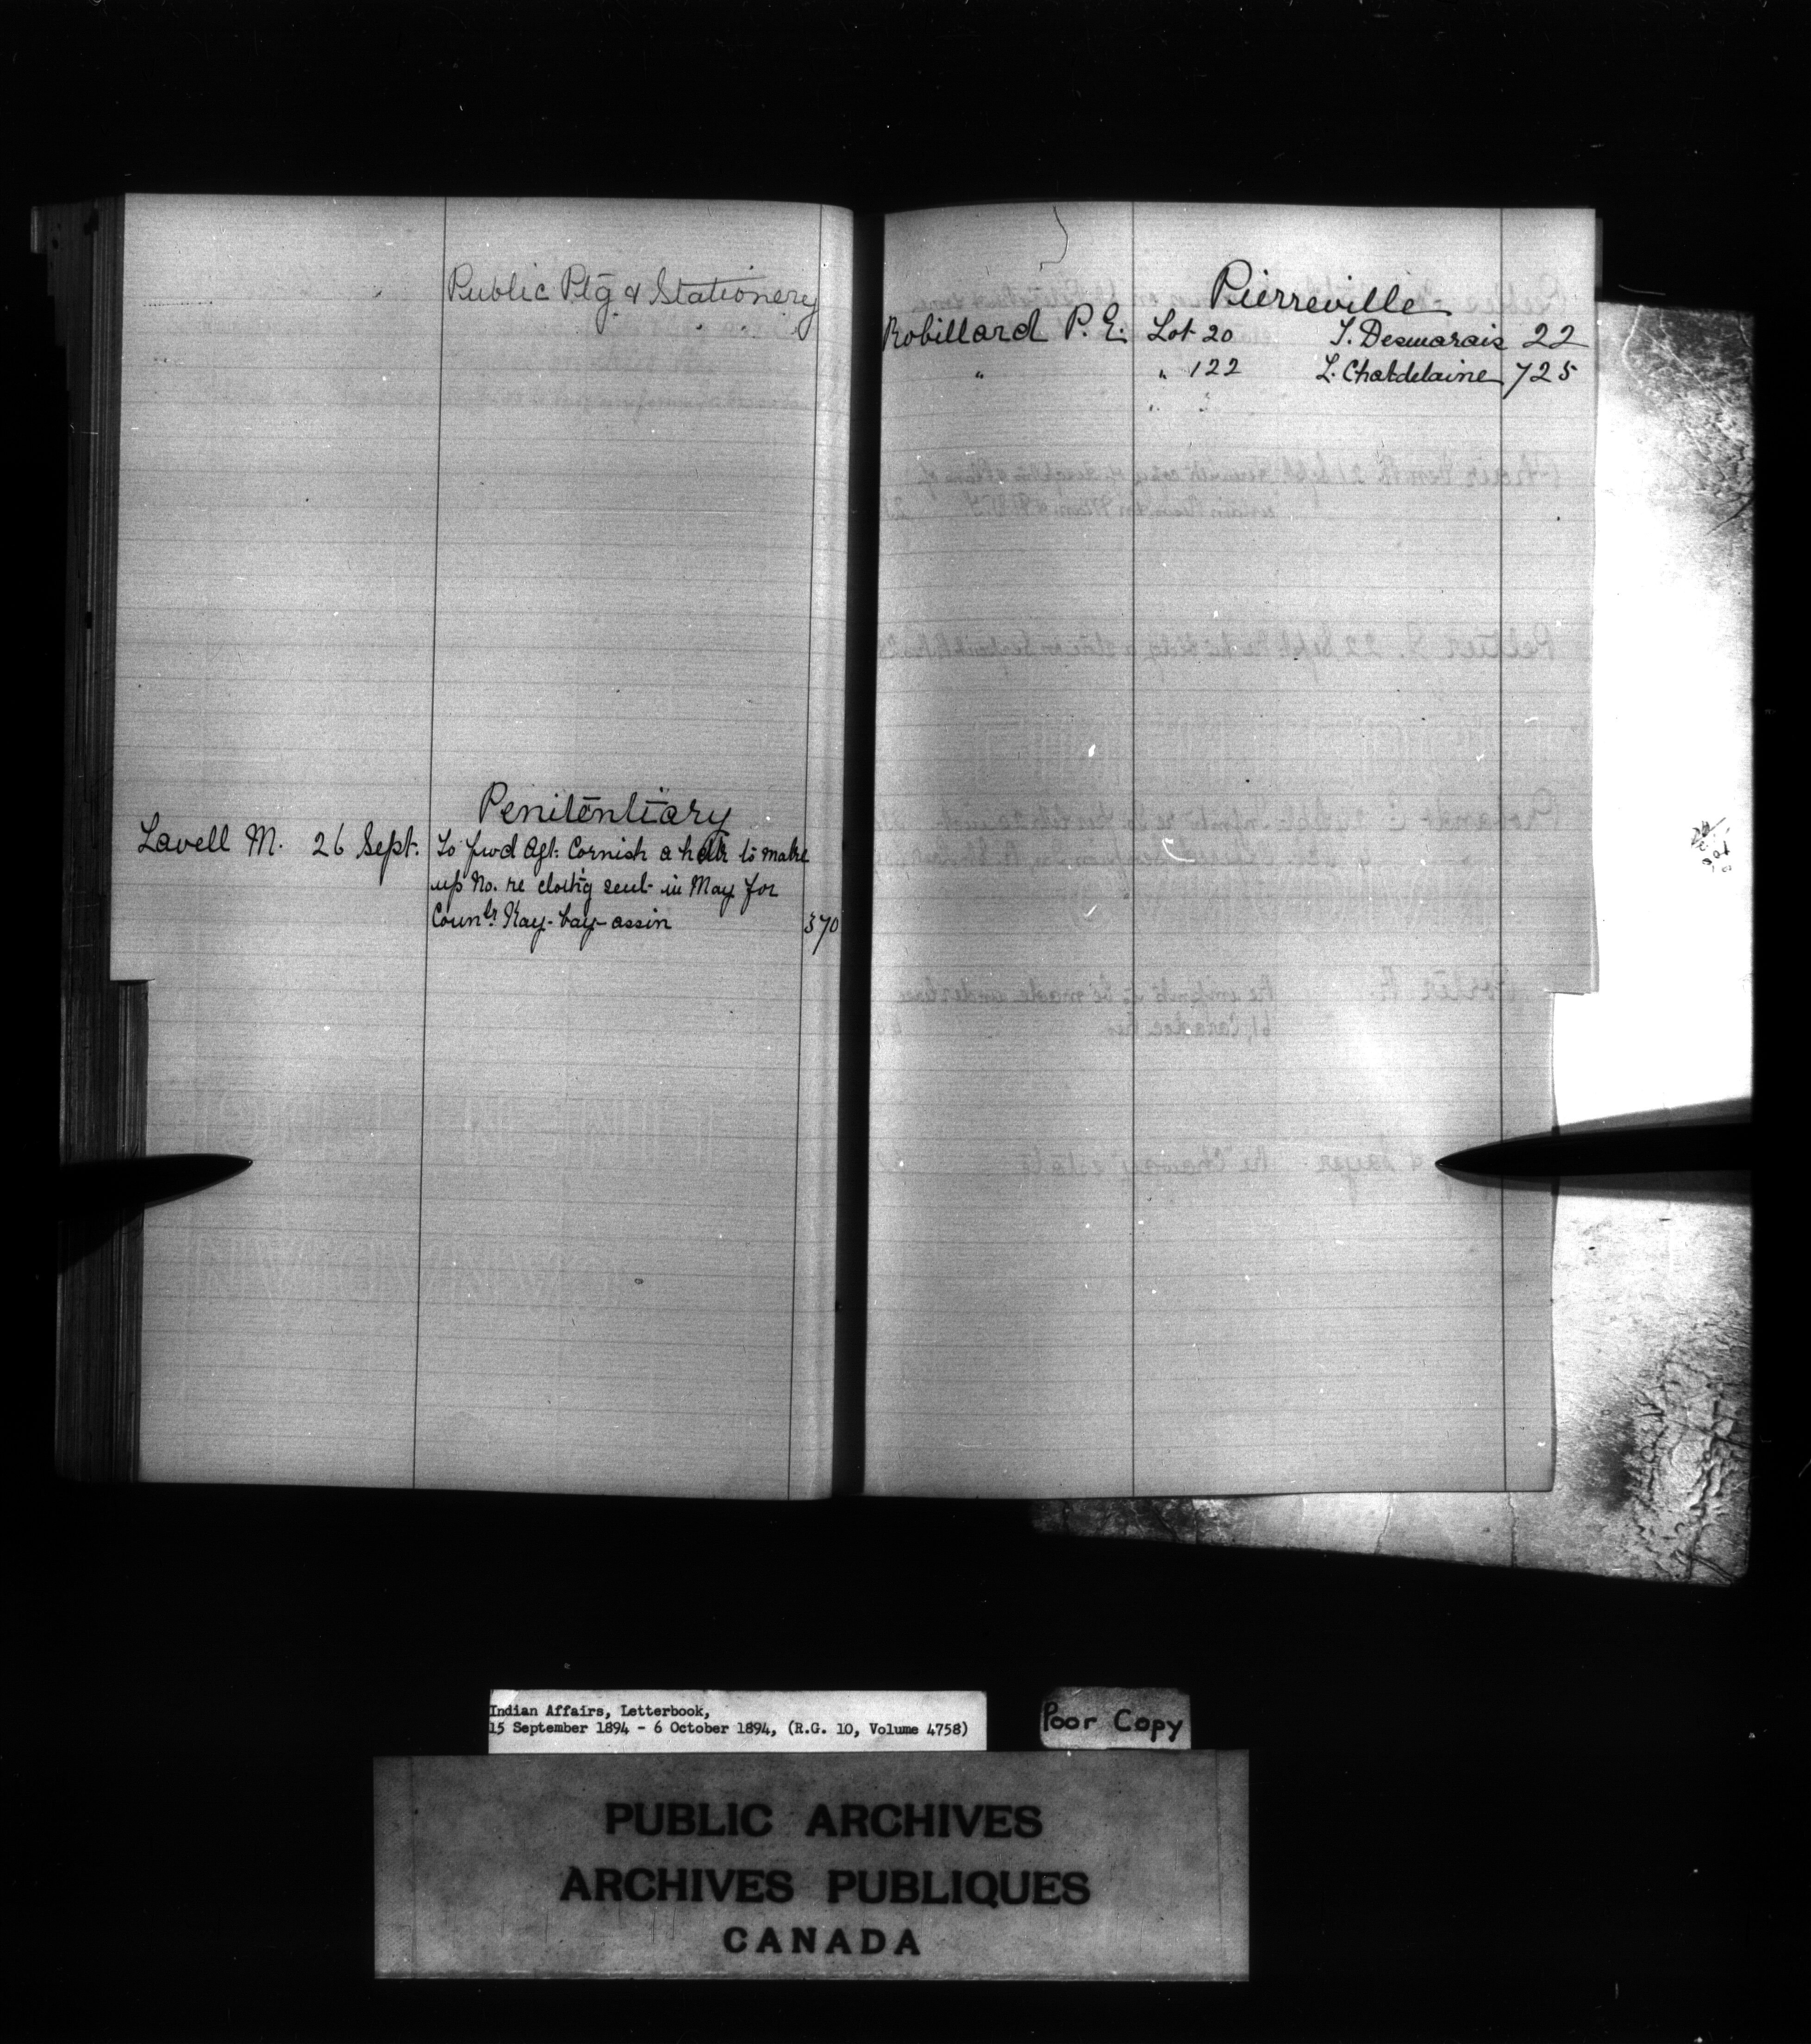 Public Ptg & Stationery
Penitentiary
Lavell M. 26 Sept. To fwd Agt. Cornish a hat to make
up No. re clothg sent in May for
Counlr Kay-bay-assin 370
Pierreville
Robillard P. E. Lot 20 T. Desmarais 22
" " 122 L. Chatdelaine 725
" "
Indian Affairs, Letterbook,
15 September 1894 - 6 October 1894, (R.G. 10, Volume 4758)
Poor Copy
PUBLIC ARCHIVES
ARCHIVES PUBLIQUES
CANADA